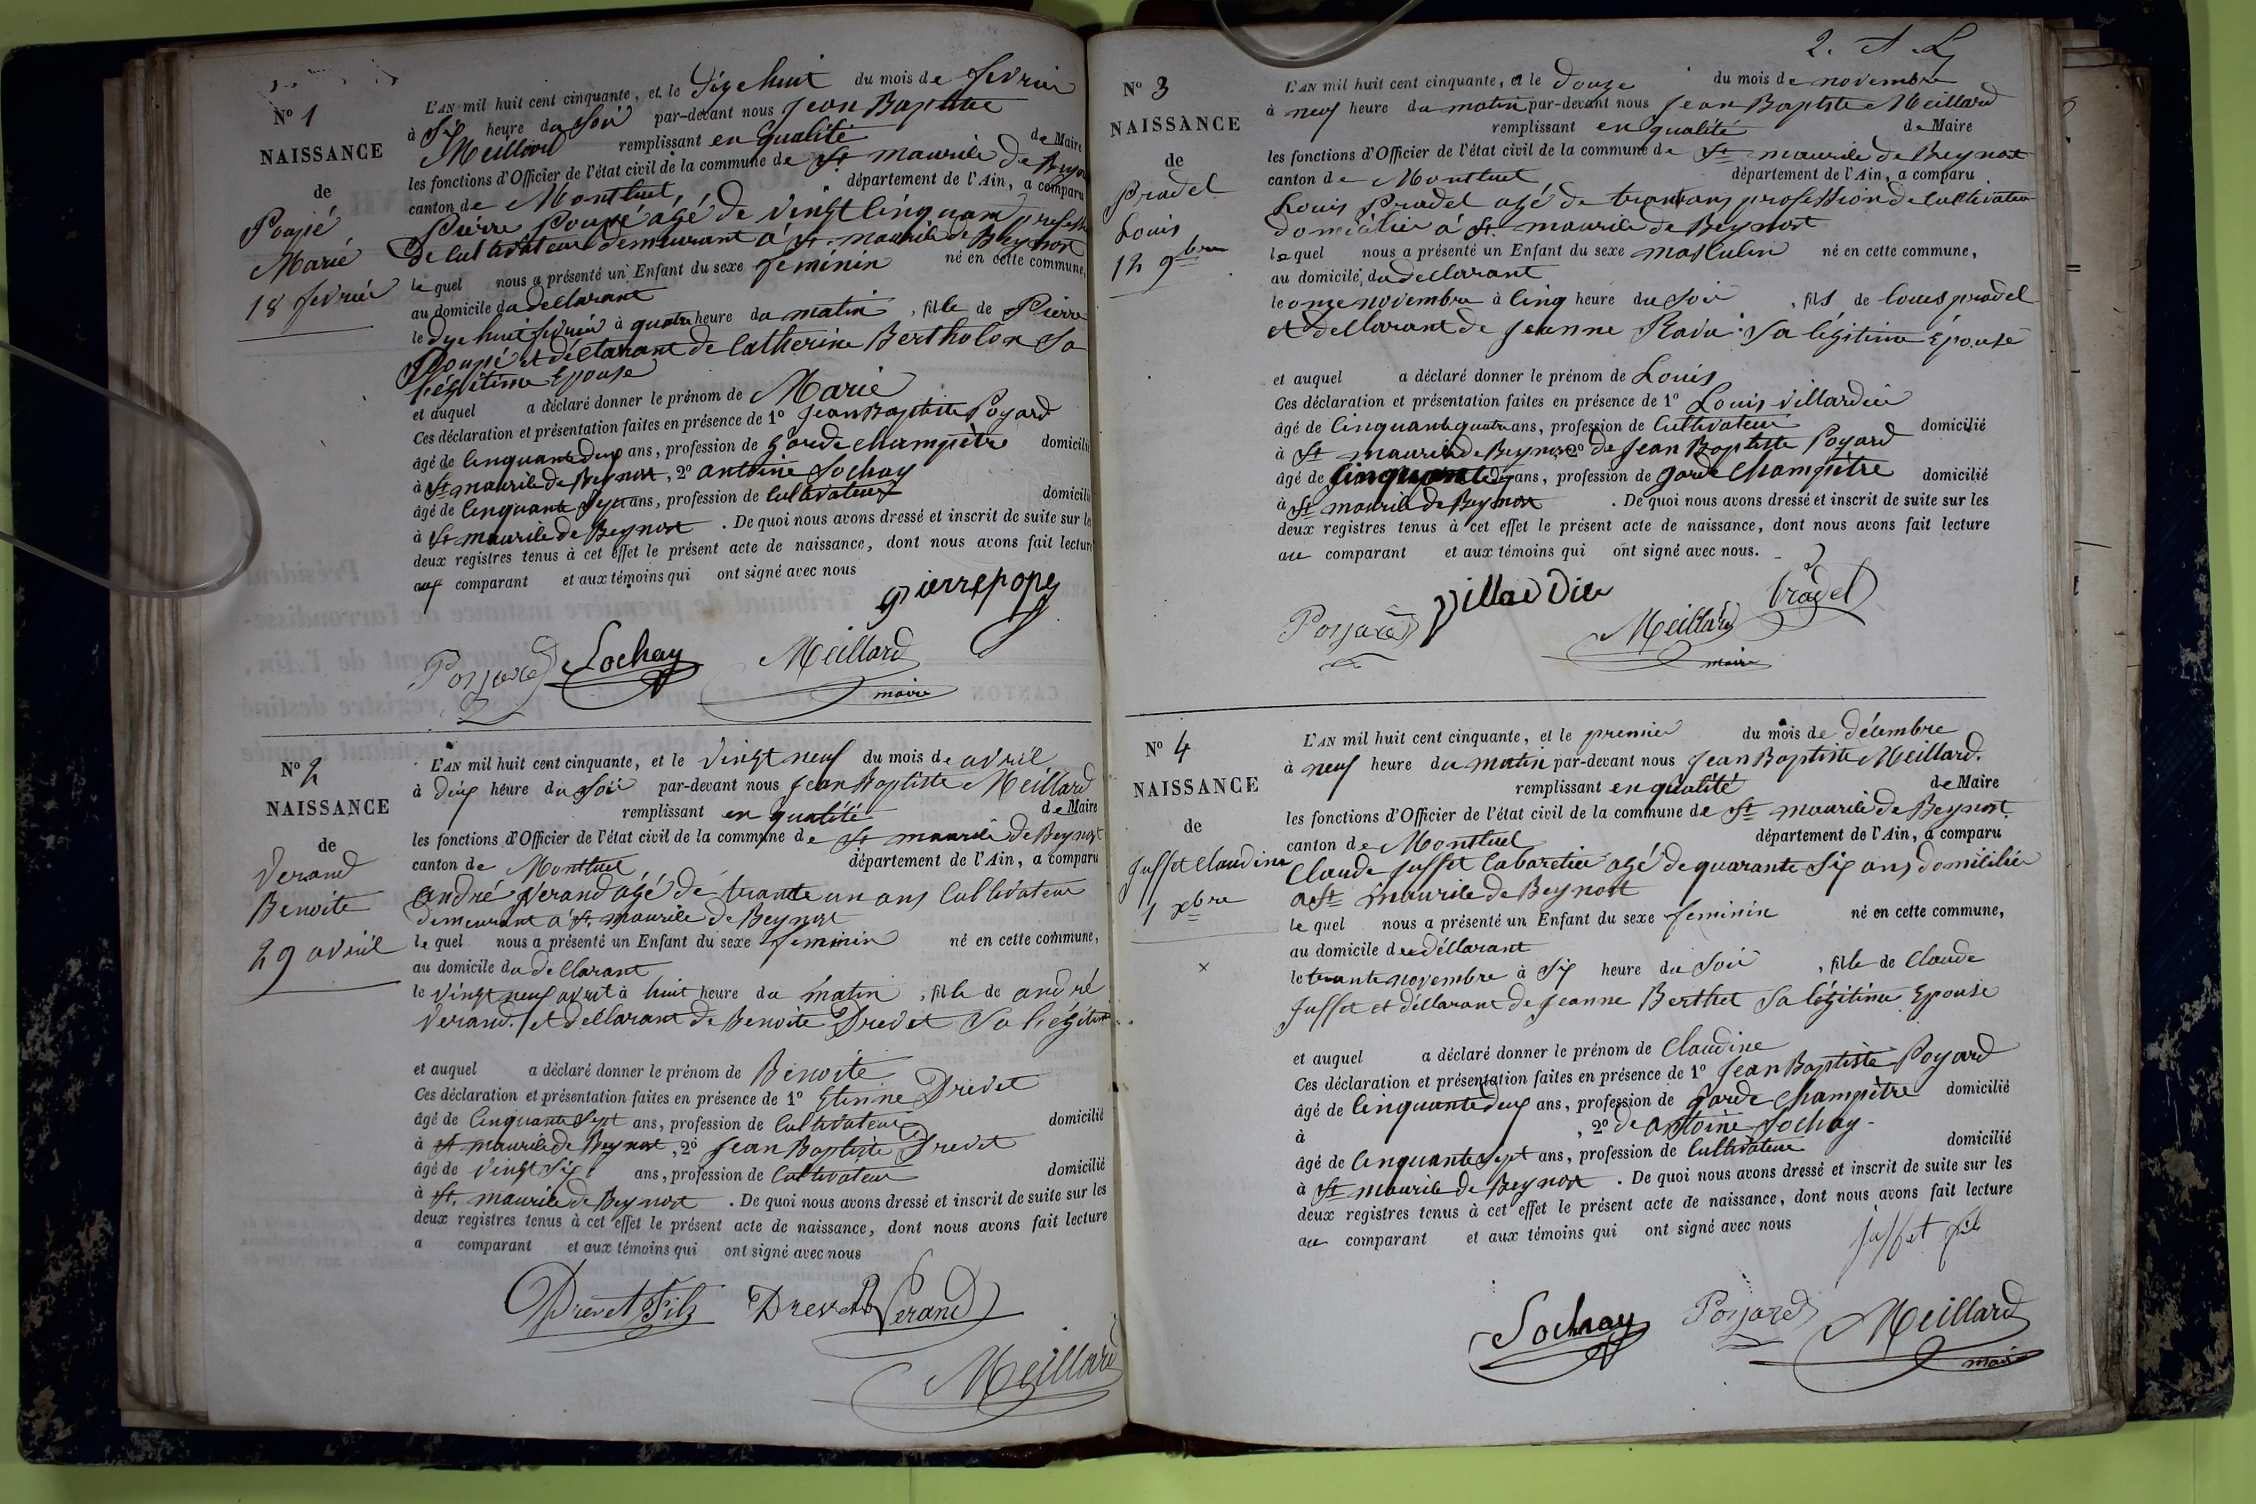 Nº 1
NAISSANCE
de
Poupé
Marie
18 fevrier
L'AN mil huit cent cinquante, et le dixe huit du mois de fevrier
à six heure du soir par-devant nous Jean Baptiste
Meillard remplissant en qualité de Maire
les fonctions d'Officier de l'état civil de la commune de St maurice de Beynost
canton de Montluel, département de l'Ain, a comparu
Pierre Poupé agé de vingt cinq ans profession
de cultivateur demeurant à St. maurice de Beynost
le quel nous a présenté un Enfant du sexe feminin né en cette commune,
au domicile du declarant
le dixe huit fevrier à quatre heure du matin, fille de Pierre
Poupé et déclarant de Catherine Bertholon sa
légitime Epouse
et auquel a déclaré donner le prénom de Marie
Ces déclaration et présentation faites en présence de 1º Jean Baptiste Poyard
âgé de cinquante deux ans, profession de garde champètre domicilié
à St maurice de Beynost, 2º antoine Sochay
âgé de cinquante sept ans, profession de cultivateur domicilié
à St maurice de Beynost. De quoi nous avons dressé et inscrit de suite sur les
deux registres tenus à cet effet le présent acte de naissance, dont nous avons fait lecture
aux comparant et aux témoins qui ont signé avec nous
pierre popey
Poyard Sochay Meillard
maire
Nº 2
NAISSANCE
de
Verand
Benoite
29 avril
L'AN mil huit cent cinquante, et le vingt neuf du mois de avril
à deux heure du soir par-devant nous Jean Baptiste Meillard
remplissant en qualité de Maire
les fonctions d'Officier de l'état civil de la commune de St maurice de Beynost
canton de Montluel département de l'Ain, a comparu
André Verand agé de trante un ans cultivateur
demeurant à St. maurice de Beynost
le quel nous a présenté un Enfant du sexe feminin né en cette commune,
au domicile du declarant
le vingt neuf avril à huit heure du matin, fille de andré
Verand et declarant de Benoite Drevet sa légitime
et auquel a déclaré donner le prénom de Benoite
Ces déclaration et présentation faites en présence de 1º Etienne Drevet
âgé de cinquante sept ans, profession de cultivateur domicilié
à St maurice de Beynost, 2º Jean Baptiste Drevet
âgé de vingt six ans, profession de cultivateur domicilié
à St. maurice de Beynost. De quoi nous avons dressé et inscrit de suite sur les
deux registres tenus à cet effet le présent acte de naissance, dont nous avons fait lecture
a comparant et aux témoins qui ont signé avec nous
Drevet Fils Drevet Verand
Meillard
2.
Nº 3
NAISSANCE
de
Pradel
Louis
12 9bre
L'AN mil huit cent cinquante, et le douze du mois de novembre
à neuf heure du matin par-devant nous Jean Baptiste Meillard
remplissant en qualité de Maire
les fonctions d'Officier de l'état civil de la commune de St maurice de Beynost
canton de Montluel département de l'Ain, a comparu
Louis Pradel agé de trante ans profession de cultivateur
domicilié à St. maurice de Beynost
le quel nous a présenté un Enfant du sexe masculin né en cette commune,
au domicile du declarant
le onze novembre à cinq heure du soir, fils de Louis pradel
et declarant de Jeanne sa légitime Epouse
et auquel a déclaré donner le prénom de Louis
Ces déclaration et présentation faites en présence de 1º Louis villardier
âgé de cinquante quatre ans, profession de cultivateur domicilié
à St maurice de Beynost 2º de Jean Baptiste Poyard
âgé de cinquante deux ans, profession de garde champètre domicilié
à St maurice de Beynost. De quoi nous avons dressé et inscrit de suite sur les
deux registres tenus à cet effet le présent acte de naissance, dont nous avons fait lecture
au comparant et aux témoins qui ont signé avec nous.
Poyard Pradel
Meillard
maire
Nº 4
NAISSANCE
de
Juffet Claudine
1 xbre
L'AN mil huit cent cinquante, et le premier du mois de décembre
à neuf heure du matin par-devant nous Jean Baptiste Meillard.
remplissant en qualité de Maire
les fonctions d'Officier de l'état civil de la commune de St maurice de Beynost.
canton de Montluel département de l'Ain, a comparu
Claude Juffet cabaretier agé de quarante six ans domicilié
a St maurice de Beynost
le quel nous a présenté un Enfant du sexe feminin né en cette commune,
au domicile du déclarant
le trante novembre à six heure du soir, fille de Claude
Juffet et déclarant de Jeanne Berthet sa légitime Epouse
et auquel a déclaré donner le prénom de Claudine
Ces déclaration et présentation faites en présence de 1º Jean Baptiste Poyard
âgé de cinquante deux ans, profession de garde champètre domicilié
à , 2º de antoine Sochay
âgé de cinquante sept ans, profession de cultivateur domicilié
à St maurice de Beynost. De quoi nous avons dressé et inscrit de suite sur les
deux registres tenus à cet effet le présent acte de naissance, dont nous avons fait lecture
au comparant et aux témoins qui ont signé avec nous
Juffet
Sochay Poyard Meillard
maire